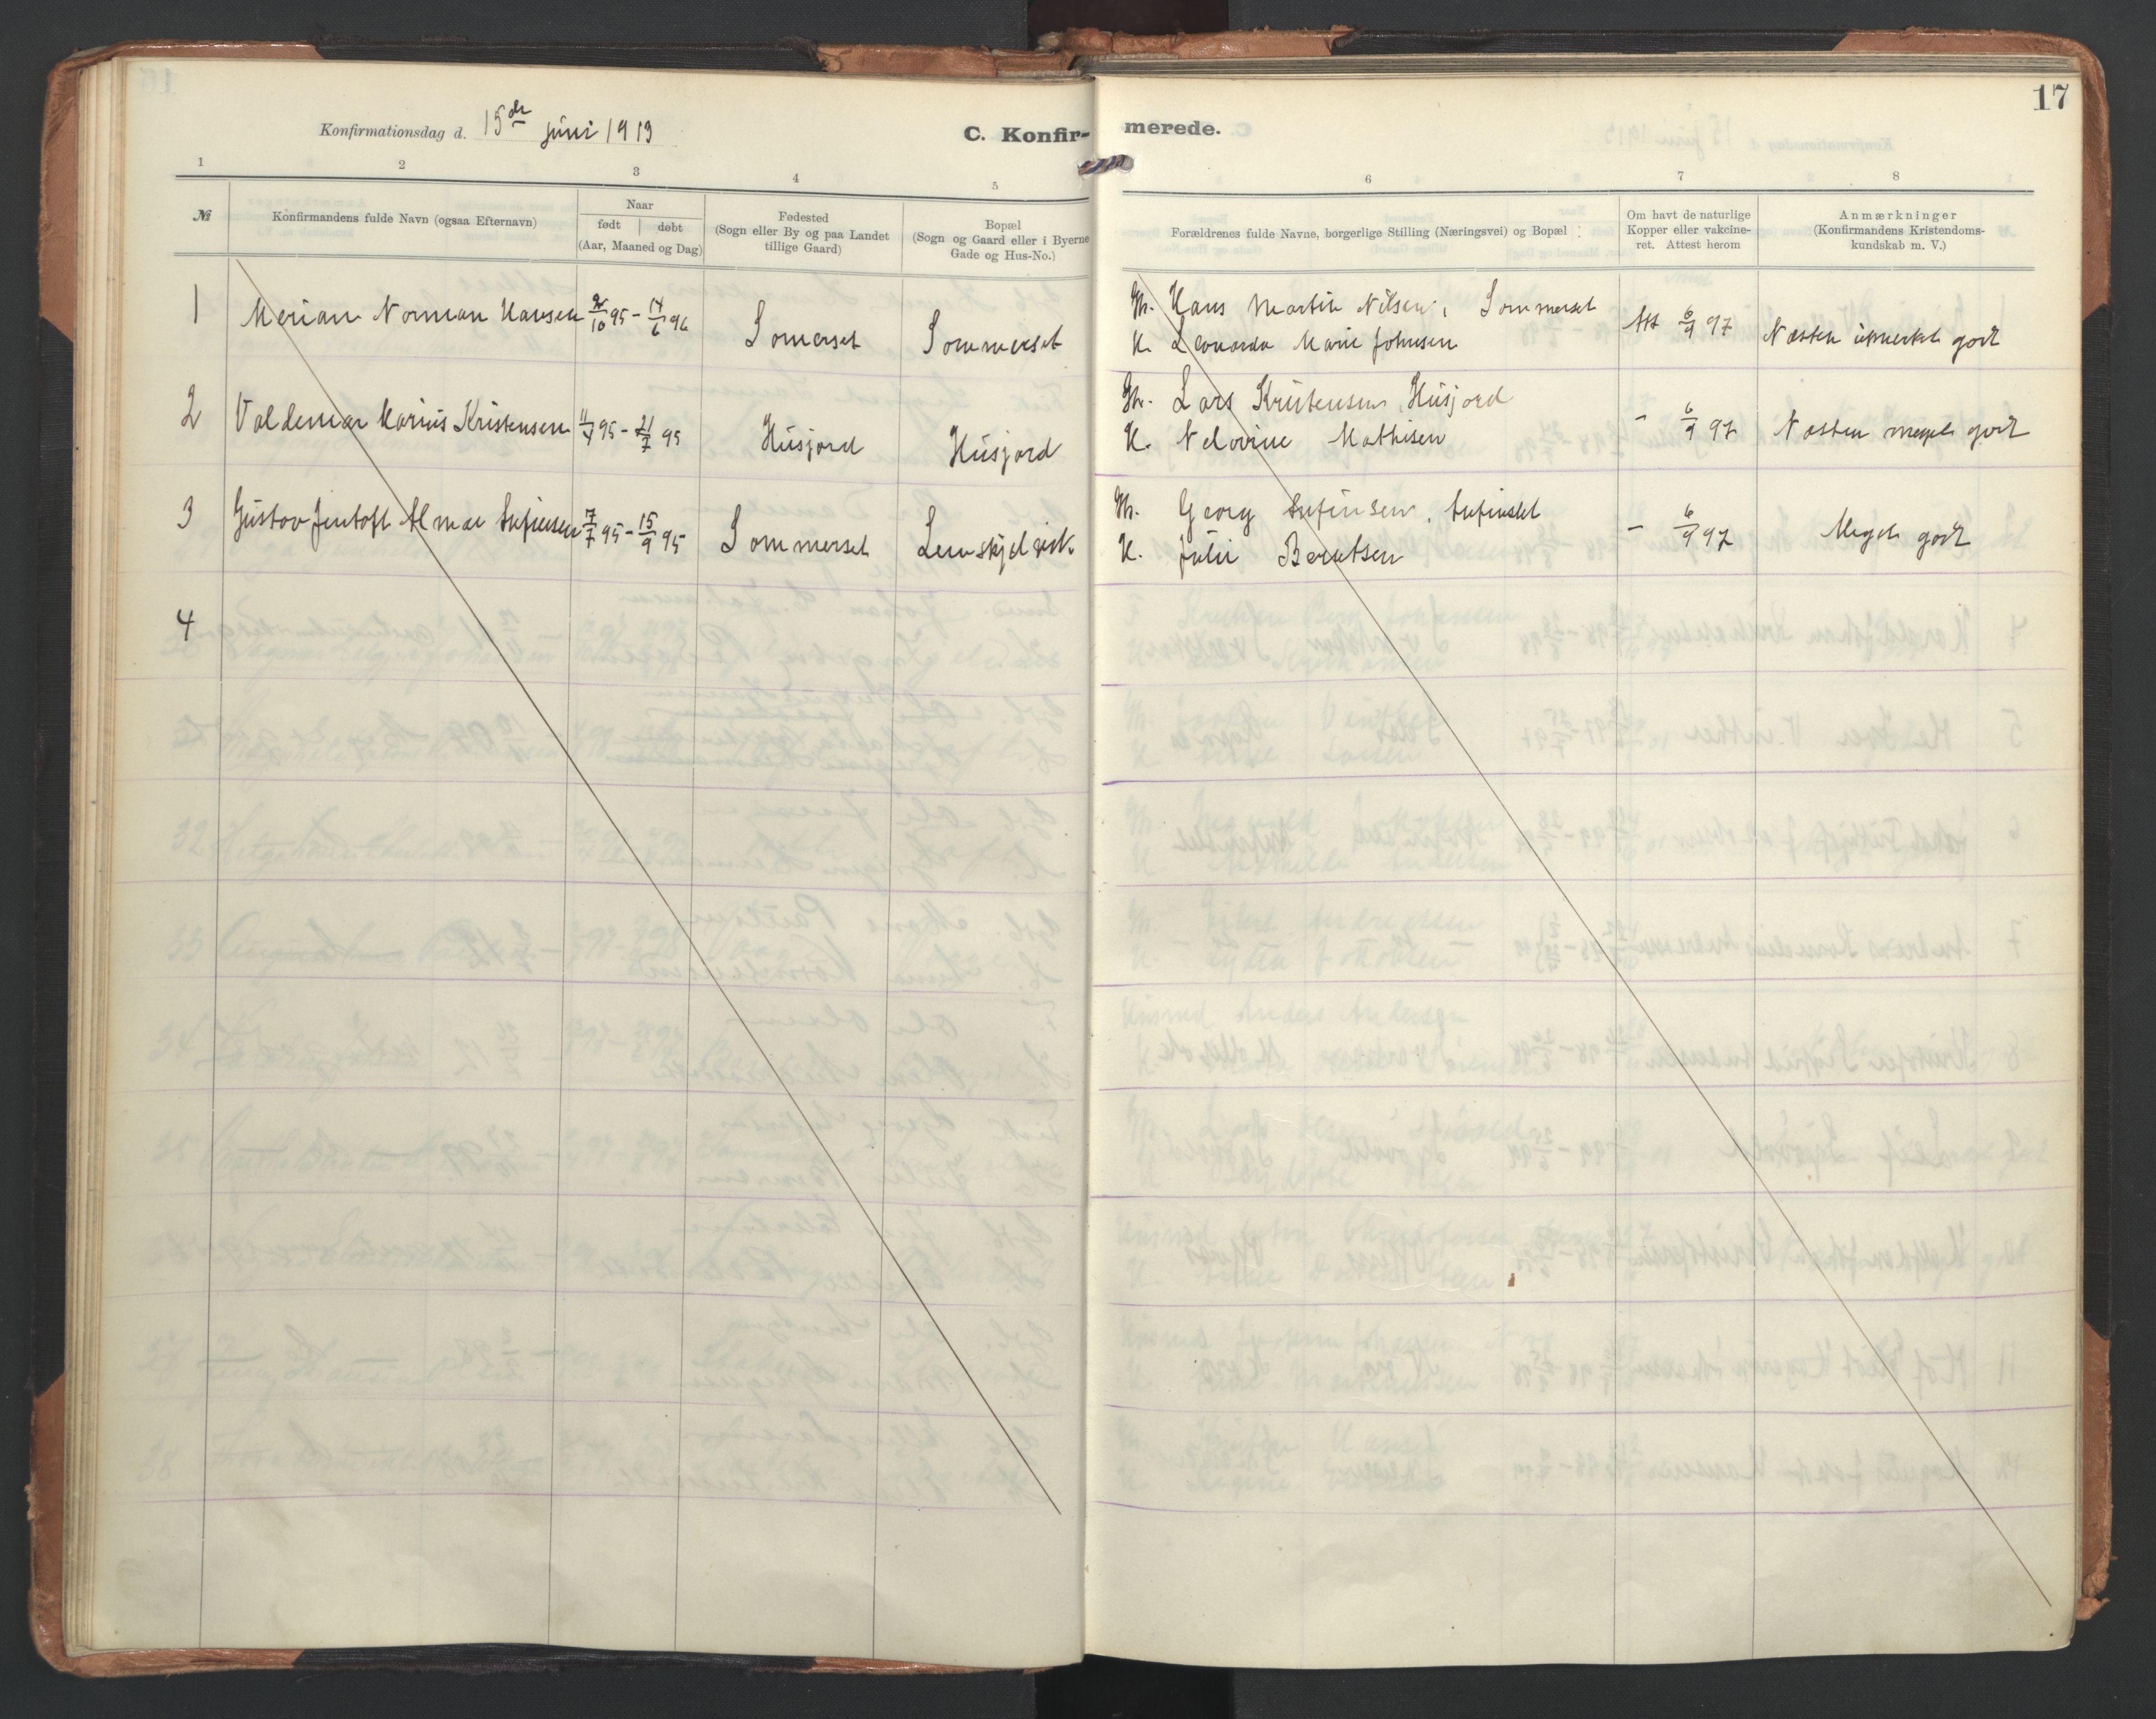 17
Konfirmationsdag d. 15de juni 1913
C. Konfir-
merede.
1 2 3 4 5
6 7 8
№ Konfirmandens fulde Navn (ogsaa Efternavn)
Naar
født | døbt
(Aar, Maaned og Dag)
Fødested
(Sogn eller By og paa Landet
tillige Gaard)
Bopæl
(Sogn og Gaard eller i Byerne
Gade og Hus-No.)
Forældrenes fulde Navne, borgerlige Stilling (Næringsvei) og Bopæl
Om havt de naturlige
Kopper eller vakcine-
ret. Attest herom
Anmærkninger
(Konfirmandens Kristendoms-
kundskab m. V.)
1 Merian Norman Hansen /10 95 - 14/6 96 Somerset Sommerset
Hans Martin Nilsen, Sommerset
K. Leonarda Marie Johnsen
Att 6/9 97 Næsten udmerket godt
2 Valdemar Marius Kristensen 11/4 95 - 21/7 95 Husjord Husjord
Lars Kristensen, Husjord
K. Nelovine Mathisen
- 6/9 97 Næsten meget godt
3 Gustav Jentoft Almar 7/7 95 - 15/9 95 Sommerset
Georg
K. Julie Berntsen
- 6/9 97 Meget godt
4